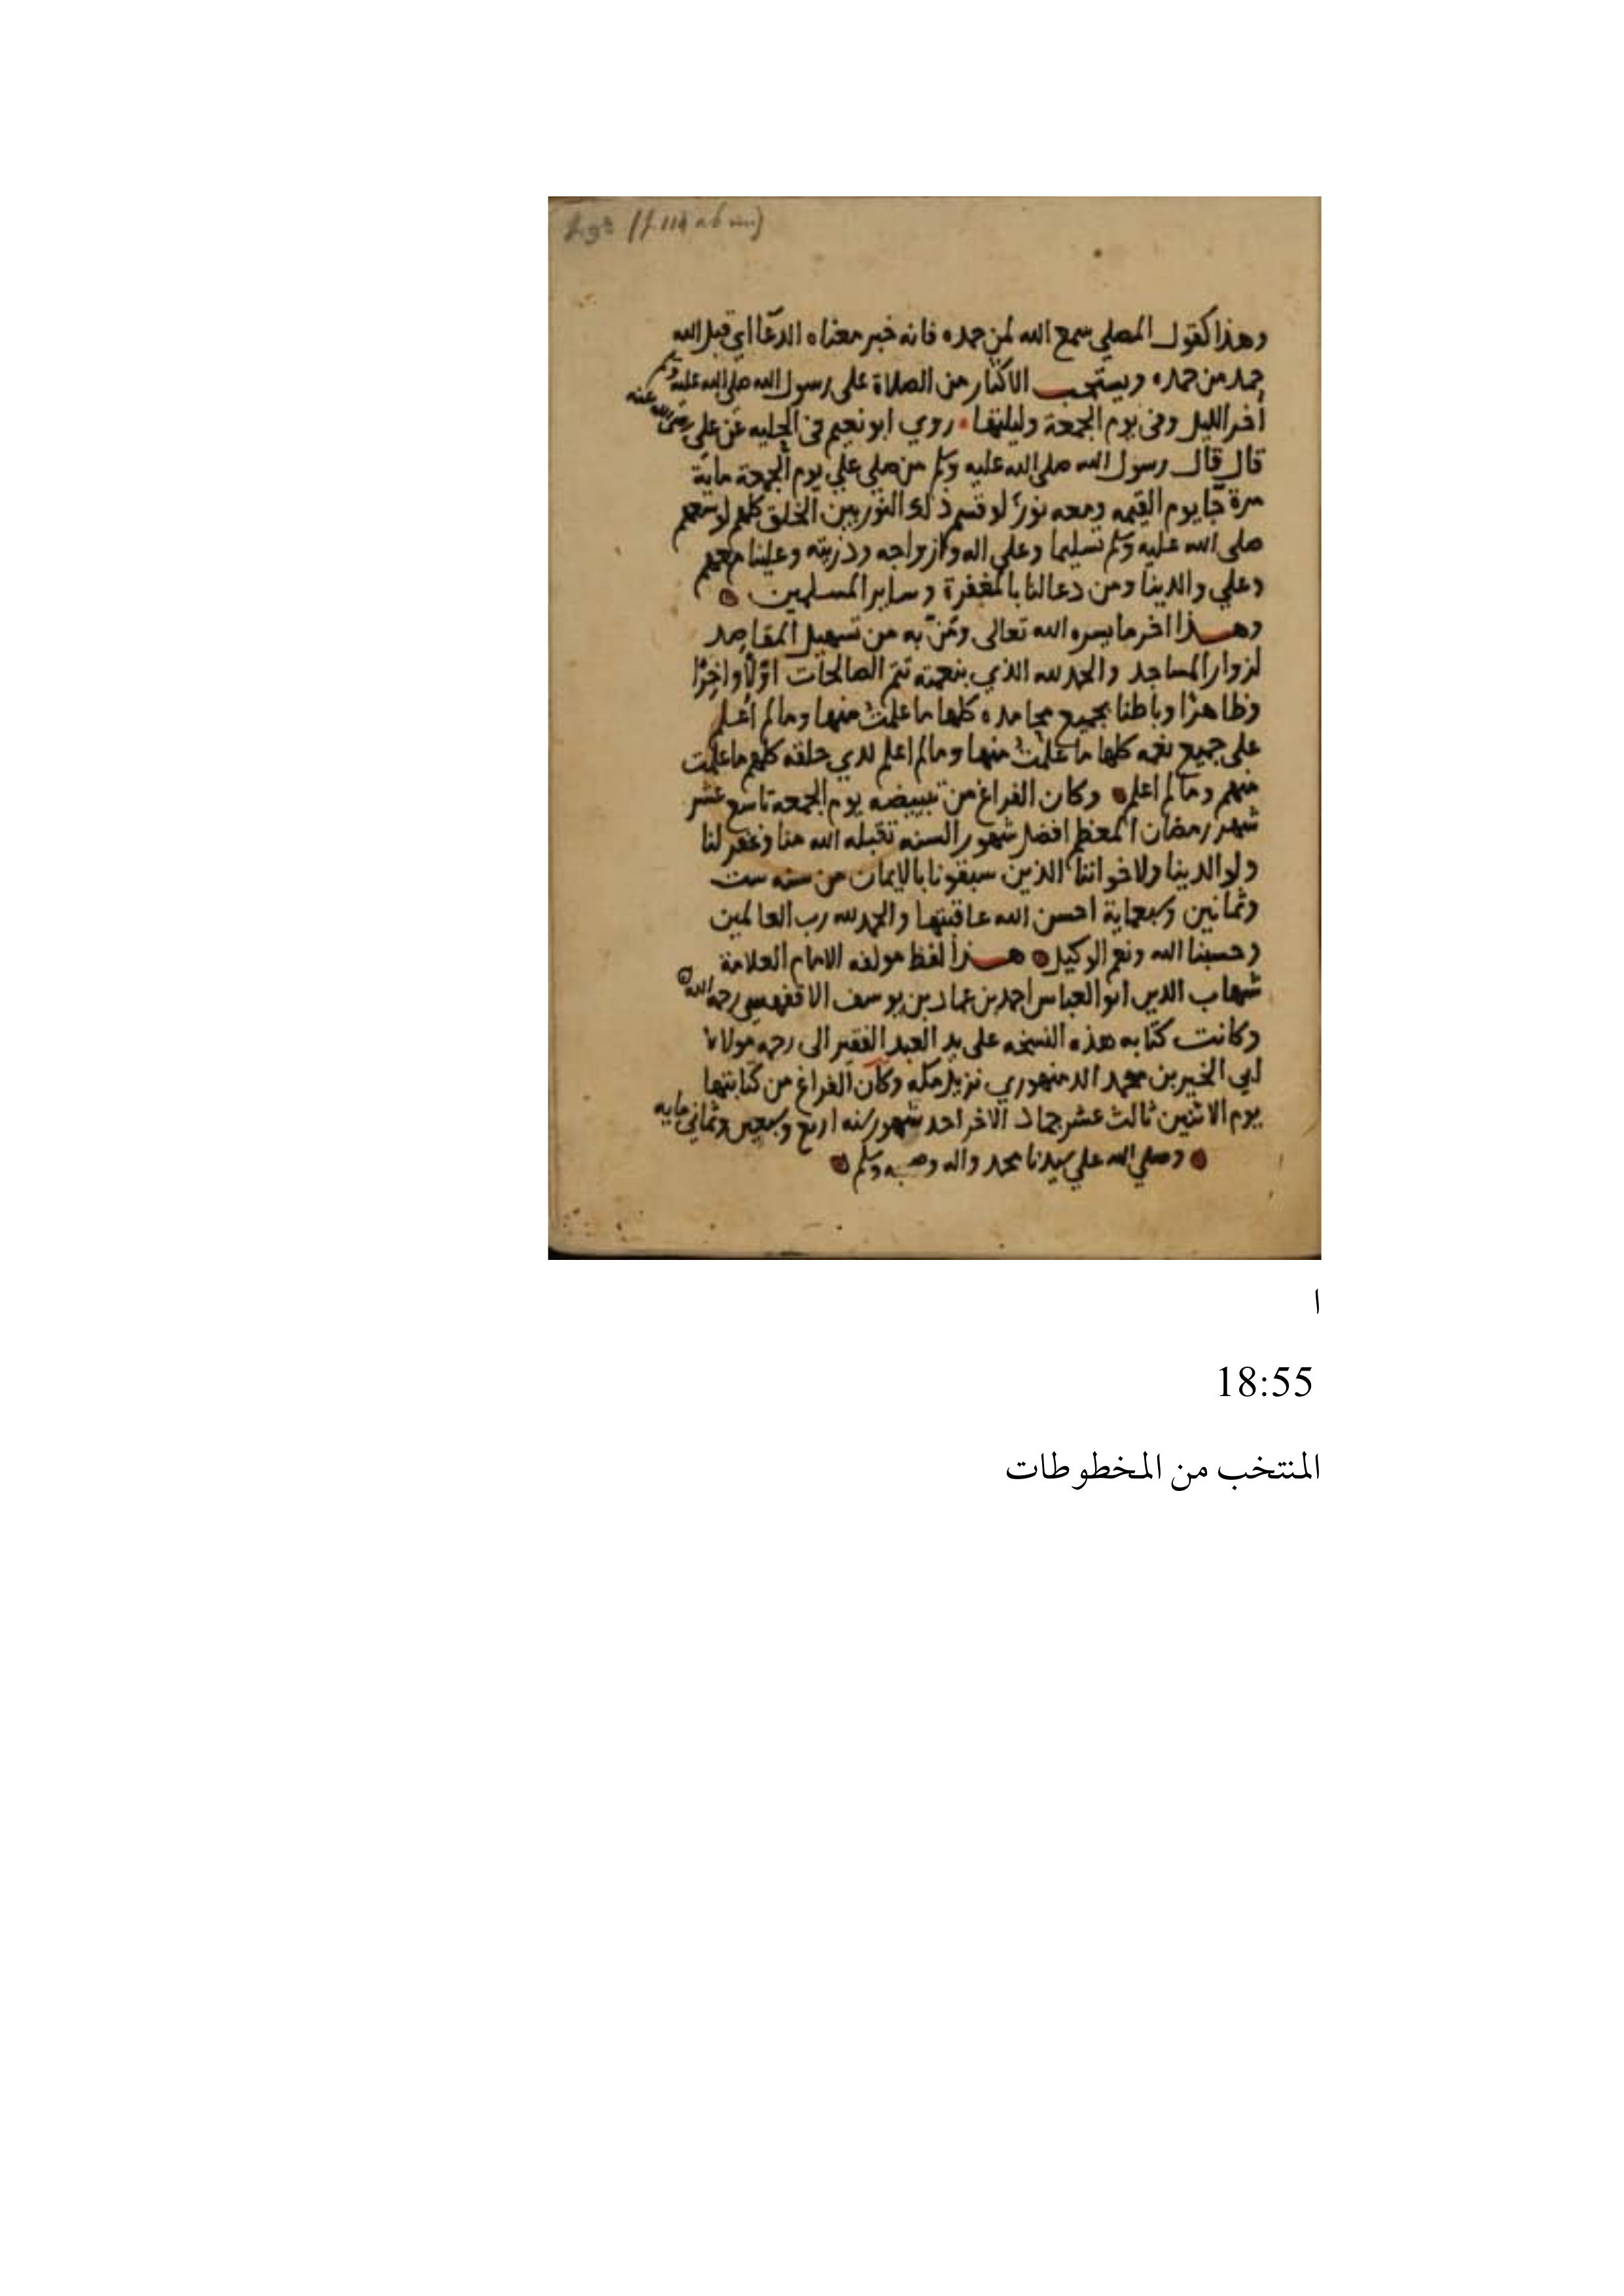 وهذا كقول المصلي سمع الله لمن حمده فانه خبر معناه الدعا اي قبل الله
حمد من حمده ويستحب الاكثار من الصلاة على رسول الله صلى الله عليه وسلم
آخر الليل وفى يوم الجمعة وليلتها روي ابو نعيم فى الحليه عن على رضى الله عنه
قال قال رسول الله صلى الله عليه وسلم من صلى علي يوم الجمعة ماية
مرة جا يوم القيمه ومعه نور لو قسم ذلك النور بين الخلق كلهم لوسعهم
صلى الله عليه وسلم تسليما وعلى اله وازواجه وذريته وعلينا معهم
وعلي والدينا ومن دعا لنا بالمغفرة وساير المسلمين
وهذا اخر ما يسره الله تعالى ومن به من تسهيل المقاصد
لزوار المساجد والحمد لله الذي بنعمته تتم الصالحات اولا واخرا
وظاهرا وباطنا بجميع محامده كلها ما علمت منها وما لم اعلم
على جميع نعمه كلها ما علمت منها وما لم اعلم لدي خلقه كلهم ما علمت
منهم وما لم اعلم وكان الفراغ من تبييضه يوم الجمعه تاسع عشر
شهر رمضان المعظم افضل شهور السنه تقبله الله منا وغفر لنا
ولوالدينا ولاخواننا الذين سبقونا بالايمان من سنه ست
وثمانين وسبعماية احسن الله عاقبتها والحمد لله رب العالمين
وحسبنا الله ونعم الوكيل هذا لفظ مولفه الامام العلامة
شهاب الدين ابو العباس احمد بن عماد بن يوسف الاقفهسي رحمه الله
وكانت كتابه هذه النسخه على يد العبد الفقير الى رحمه مولانا
ابي الخير بن محمد الدمنهوري نزيل مكه وكان الفراغ من كتابتها
يوم الاثنين ثالث عشر جماد الاخر احد شهور سنه اربع وسبعين وثماني مايه
وصلي الله علي سيدنا محمد واله وصحبه وسلم
ا
18:55
المنتخب من المخطوطات